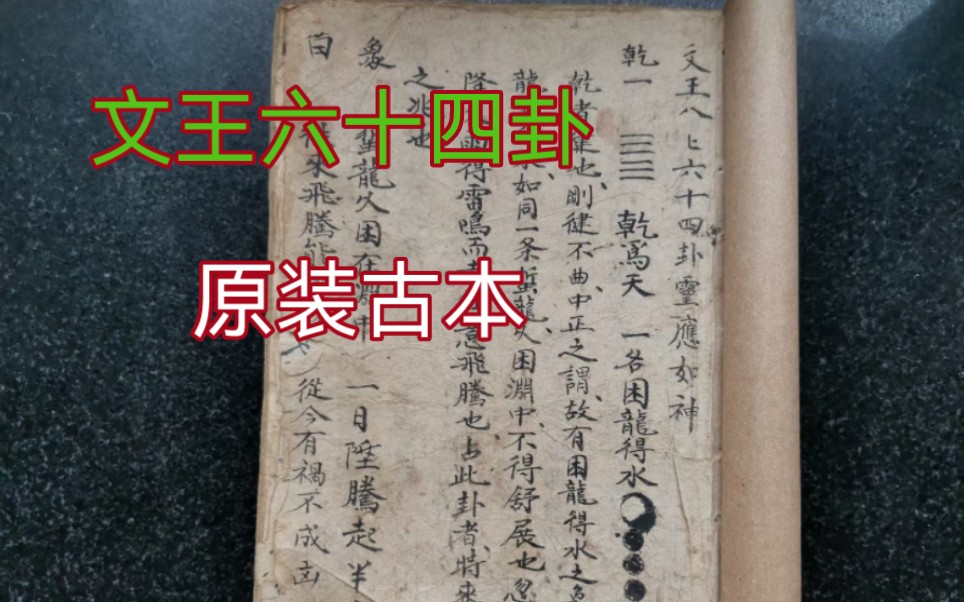 文王六十四卦
原装古本
文王八卜六十四卦靈應如神
乾一 乾爲天 一各困龍得水
乾者健也剛健不曲中正之謂故有困龍得水之
龍 如同一条蜇龍久困淵中不得舒展也忽
降 得雷鳴而 意飛騰也占此卦者特來
之兆也
象 蜇龍久困在淵中 一日陞騰起半
曰 來飛騰能 從今有禍不成凶